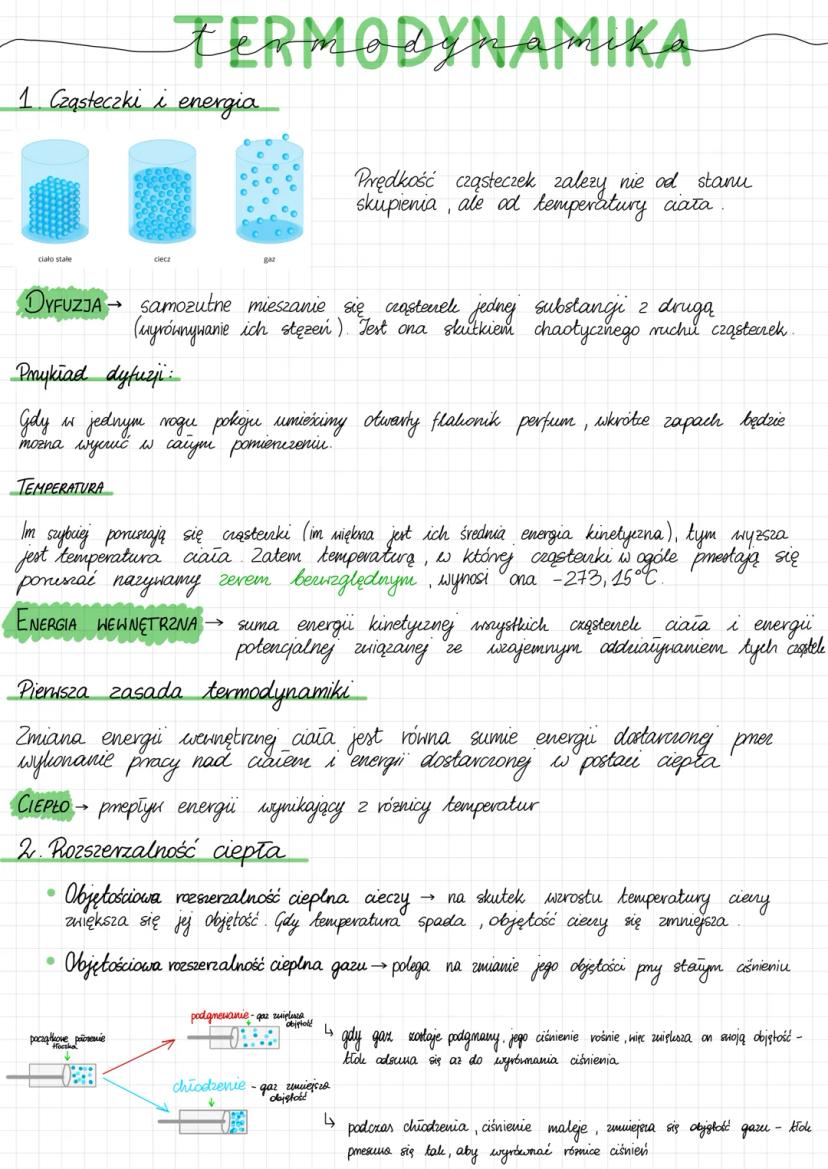 TERMODYNAMIKA
termodynamika
1. Cząsteczki i energia
ciało stałe
ciecz
gaz
Prędkość cząsteczek zależy nie od stanu
skupienia, ale od temperatury ciała.
DYFUZJA → samorzutne mieszanie się cząsteczek jednej substancji z drugą
(wyrównywanie ich stężeń). Jest ona skutkiem chaotycznego ruchu cząsteczek.
Przykład dyfuzji:
Gdy w jednym rogu pokoju umieścimy otwarty flakonik perfum, wkrótce zapach będzie
można wyczuć w całym pomieszczeniu.
TEMPERATURA
Im szybciej poruszają się cząsteczki (im większa jest ich średnia energia kinetyczna), tym wyższa
jest temperatura ciała. Zatem temperaturę, w której cząsteczki w ogóle przestają się
poruszać nazywamy zerem bezwzględnym, wynosi ona -273,15°C.
ENERGIA WEWNĘTRZNA → suma energii kinetycznej wszystkich cząsteczek ciała i energii
potencjalnej związanej ze wzajemnym oddziaływaniem tych
Pierwsza zasada termodynamiki
Zmiana energii wewnętrznej ciała jest równa sumie energii dostarczonej przez
wykonanie pracy nad ciałem i energii dostarczonej w postaci ciepła
CIEPŁO → przepływ energii wynikający z różnicy temperatur
2. Rozszerzalność ciepła
• Objętościowa rozszerzalność cieplna cieczy → na skutek wzrostu temperatury cieczy
zwiększa się jej objętość. Gdy temperatura spada, objętość cieczy się zmniejsza.
• Objętościowa rozszerzalność cieplna gazu → polega na zmianie jego objętości przy stałym ciśnieniu
początkowe położenie
tłoczka
podgrzewanie - gaz zwiększa
objętość
↳ gdy gaz zostaje podgrzany, jego ciśnienie rośnie, więc zwiększa on swoją objętość -
tłok odsuwa się aż do wyrównania ciśnienia
chłodzenie - gaz zmniejsza
objętość
↳ podczas chłodzenia, ciśnienie maleje, zmniejsza się objętość gazu - tłok
przesuwa się tak, aby wyrównać różnice ciśnień